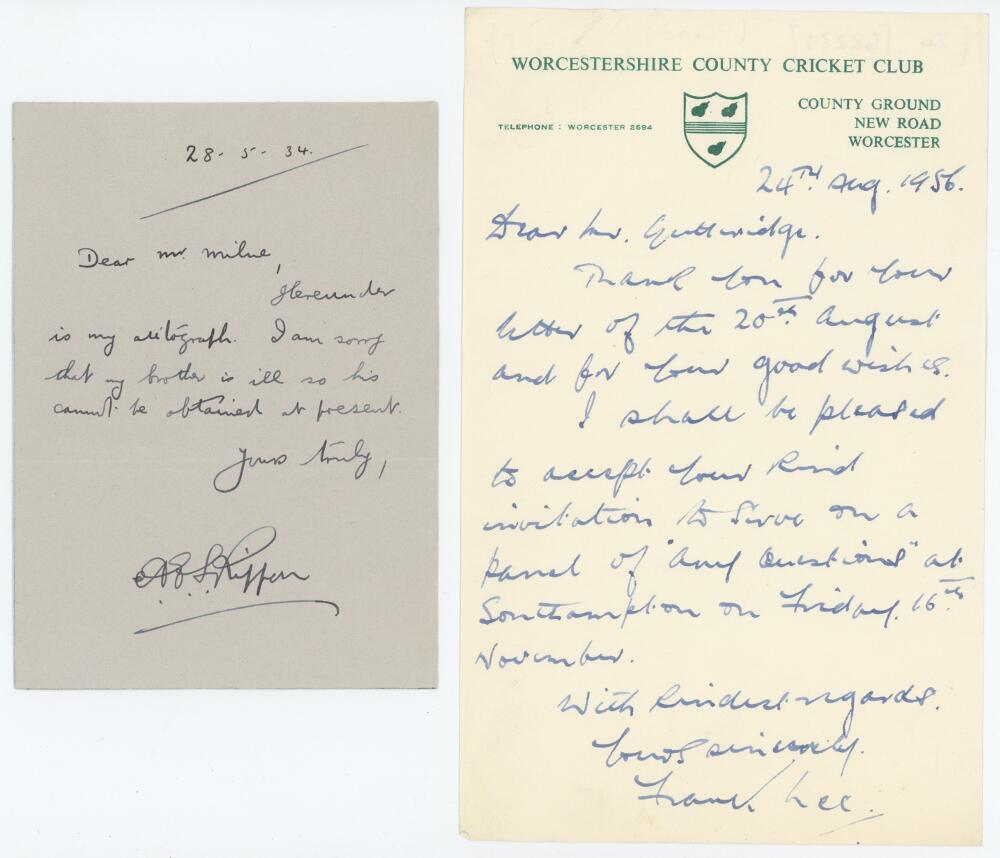 28-5-34.
Dear Mr. Milne,
Hereunder
is my autograph. I am sorry
that my brother is ill so his
cannot be obtained at present.
Yours truly,
A.E.S. Rippon
WORCESTERSHIRE COUNTY CRICKET CLUB
TELEPHONE : WORCESTER 2694
COUNTY GROUND
NEW ROAD
WORCESTER
24TH Aug. 1956.
Dear Mr. Gutteridge.
Thank you for your
letter of the 20th August
and for your good wishes.
I shall be pleased
to accept your kind
invitation to serve on a
panel of "Any Questions" at
Southampton on Friday, 16th
November.
With kindest regards.
Yours sincerely.
Frank Lee.